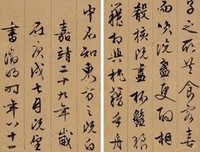 子之所共食客喜
而笑洗盞更酌
殽核既盡杯盤狼
藉相與枕藉乎舟
中不知東方之既白
嘉靖二十九年歲
在庚戌七月既望
徵明時年八十一